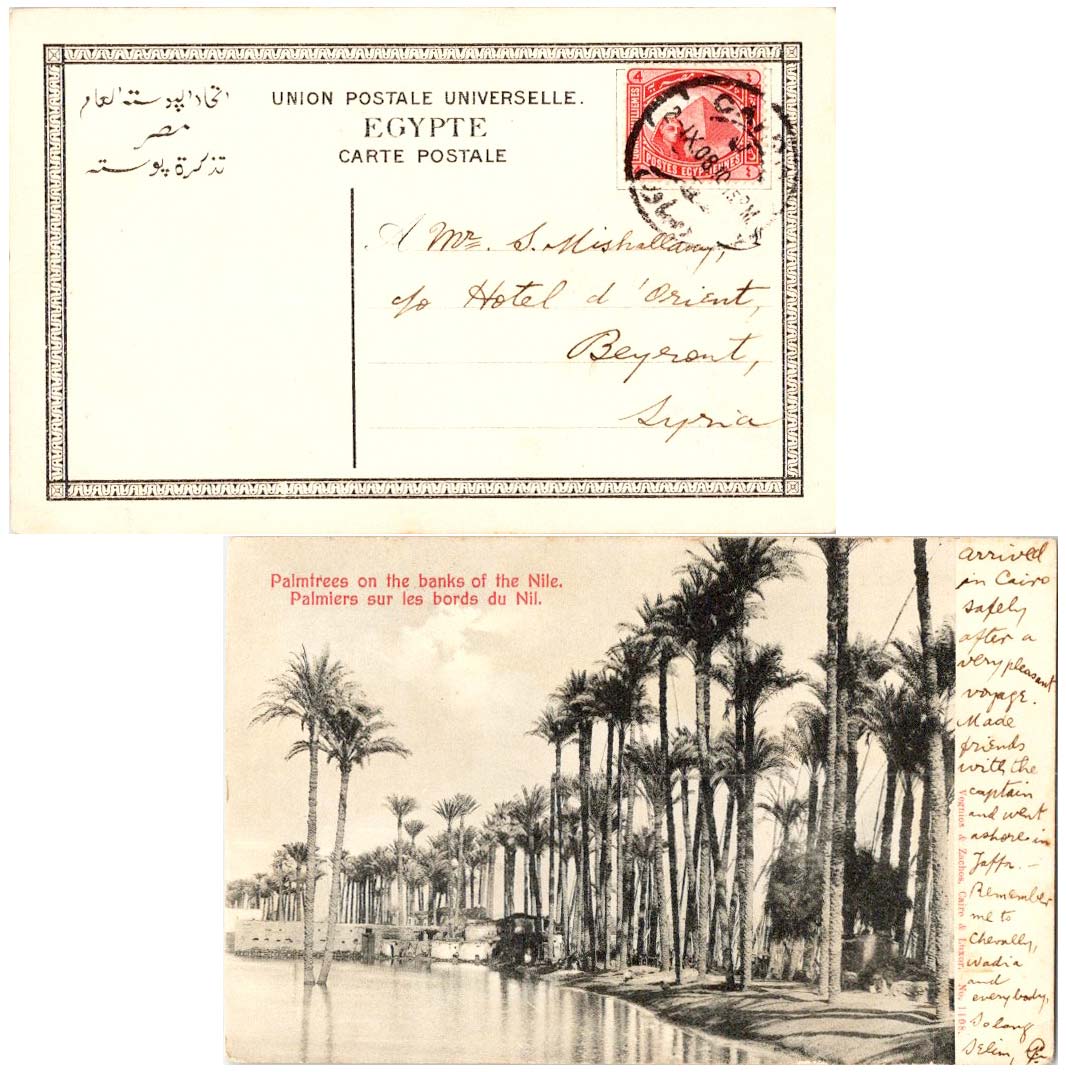 اتحاد البوسته العام
مصر
تذكرة بوسته
UNION POSTALE UNIVERSELLE.
EGYPTE
CARTE POSTALE
4
POSTES EGYPTIENNES
2-IX.08
PM.
A Mr. S. Mishallany,
c/o Hotel d'Orient,
Beyrout,
Syria
Palmtrees on the banks of the Nile.
Palmiers sur les bords du Nil.
arrived
in Cairo
safely
after a
very pleasant
voyage.
Made
friends
with the
captain
and went
ashore in
Jaffa. —
Remember
me to
Chevally,
Wadia
and
everybody,
So long
Selim,
Vognios & Zachos, Cairo & Luxor. No. 1108.